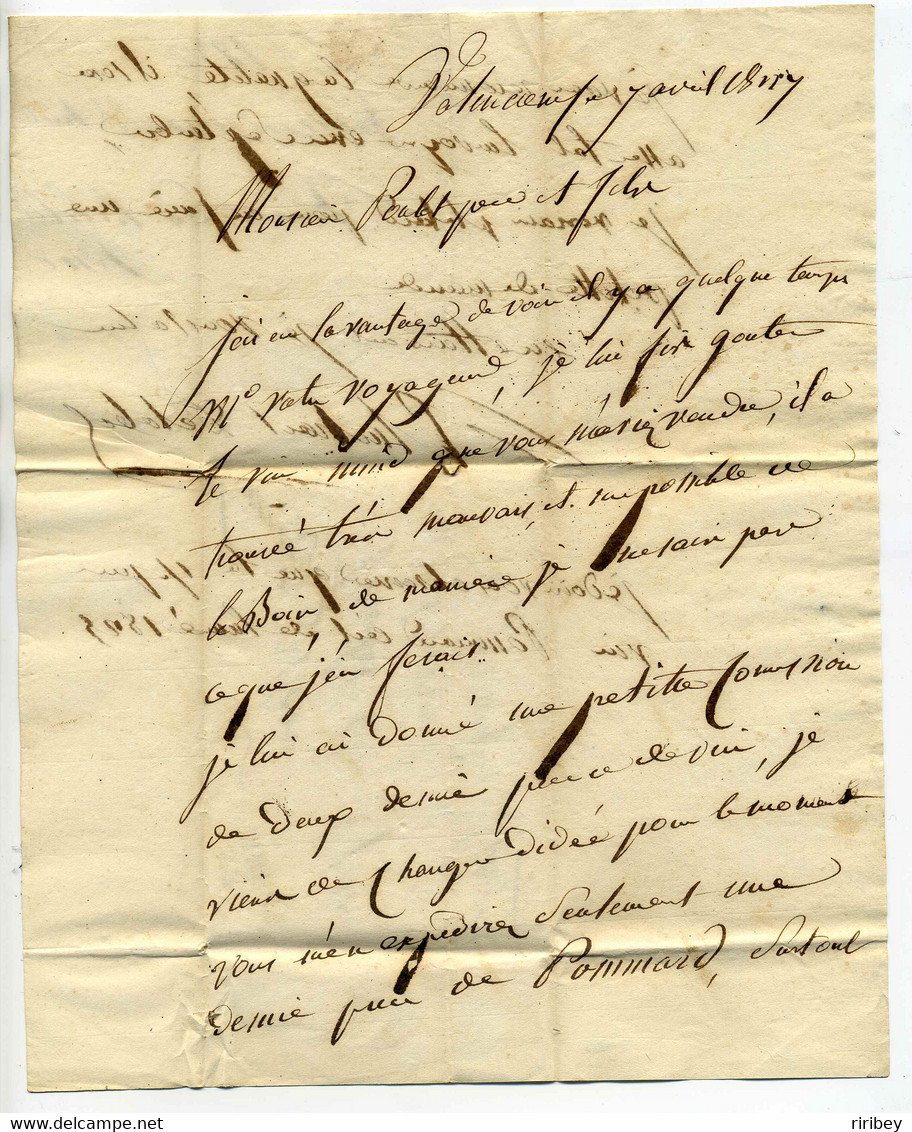 Valenciennes 7 avril 1827
Monsieur Poulet pere et fils
jai eu lavantage de voir il y a quelque temps
Mr votre voyageur, je lui fis gouter
le vin que vous mavez vendu, il a
trouvé tres mauvais, et impossible de
le Boire, de maniere je ne sais pas
ce que jen ferais.
je lui ai donné une petitte Comission
de deux demie piece de vin, je
viens de Changer didée pour le moment
vous men expedirez seulement une
demie piece de Pommard, surtout
riribey